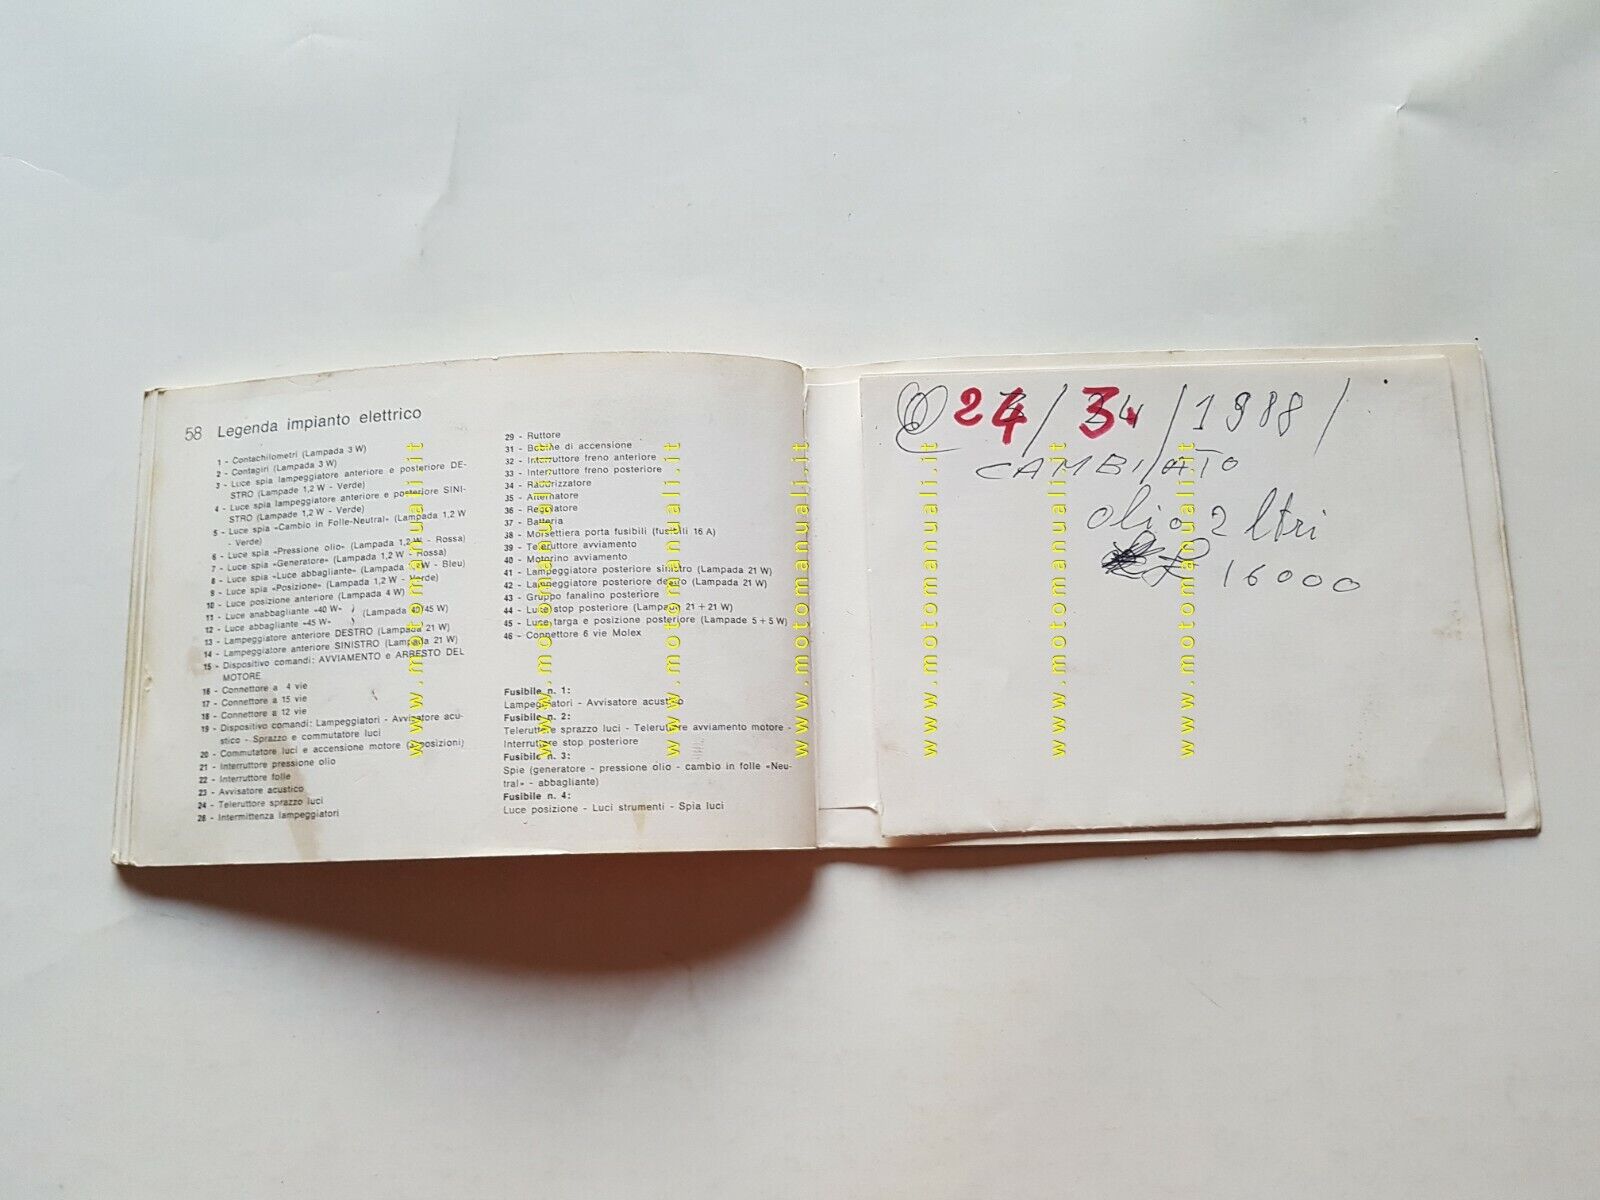 58 Legenda impianto elettrico
1 - Contachilometri (Lampada 3 W)
2 - Contagiri (Lampada 3 W)
3 - Luce spia lampeggiatore anteriore e posteriore DE-
STRO (Lampade 1,2 W - Verde)
4 - Luce spia lampeggiatore anteriore e posteriore SINI-
STRO (Lampade 1,2 W - Verde)
5 - Luce spia «Cambio in Folle-Neutral» (Lampada 1,2 W
- Verde)
6 - Luce spia «Pressione olio» (Lampada 1,2 W - Rossa)
7 - Luce spia «Generatore» (Lampada 1,2 W - Rossa)
8 - Luce spia «Luce abbagliante» (Lampada W - Bleu)
9 - Luce spia «Posizione» (Lampada 1,2 W - Verde)
10 - Luce posizione anteriore (Lampada 4 W)
11 - Luce anabbagliante «40 W» (Lampada 40/45 W)
12 - Luce abbagliante «45 W»
13 - Lampeggiatore anteriore DESTRO (Lampada 21 W)
14 - Lampeggiatore anteriore SINISTRO (Lampada 21 W)
15 - Dispositivo comandi: AVVIAMENTO e ARRESTO DEL
MOTORE
16 - Connettore a 4 vie
17 - Connettore a 15 vie
18 - Connettore a 12 vie
19 - Dispositivo comandi: Lampeggiatori - Avvisatore acu-
stico - Sprazzo e commutatore luci
20 - Commutatore luci e accensione motore (3 posizioni)
21 - Interruttore pressione olio
22 - Interruttore folle
23 - Avvisatore acustico
24 - Teleruttore sprazzo luci
26 - Intermittenza lampeggiatori
29 - Ruttore
31 - Bobine di accensione
32 - Interruttore freno anteriore
33 - Interruttore freno posteriore
34 - Raddrizzatore
35 - Alternatore
36 - Regolatore
37 - Batteria
38 - Morsettiera porta fusibili (fusibili 16 A)
39 - Teleruttore avviamento
40 - Motorino avviamento
41 - Lampeggiatore posteriore sinistro (Lampada 21 W)
42 - Lampeggiatore posteriore destro (Lampada 21 W)
43 - Gruppo fanalino posteriore
44 - Luce stop posteriore (Lampada 21 + 21 W)
45 - Luce targa e posizione posteriore (Lampade 5 + 5 W)
46 - Connettore 6 vie Molex
Fusibile n. 1:
Lampeggiatori - Avvisatore acustico
Fusibile n. 2:
Teleruttore sprazzo luci - Teleruttore avviamento motore -
Interruttore stop posteriore
Fusibile n. 3:
Spie (generatore - pressione olio - cambio in folle «Neu-
tral» - abbagliante)
Fusibile n. 4:
Luce posizione - Luci strumenti - Spia luci
24 / 3 / 1988 /
CAMBIATO
olio 2 ltri
16000
www.motomanuali.it
www.motomanuali.it
www.motomanuali.it
www.motomanuali.it
www.motomanuali.it
www.motomanuali.it
www.motomanuali.it